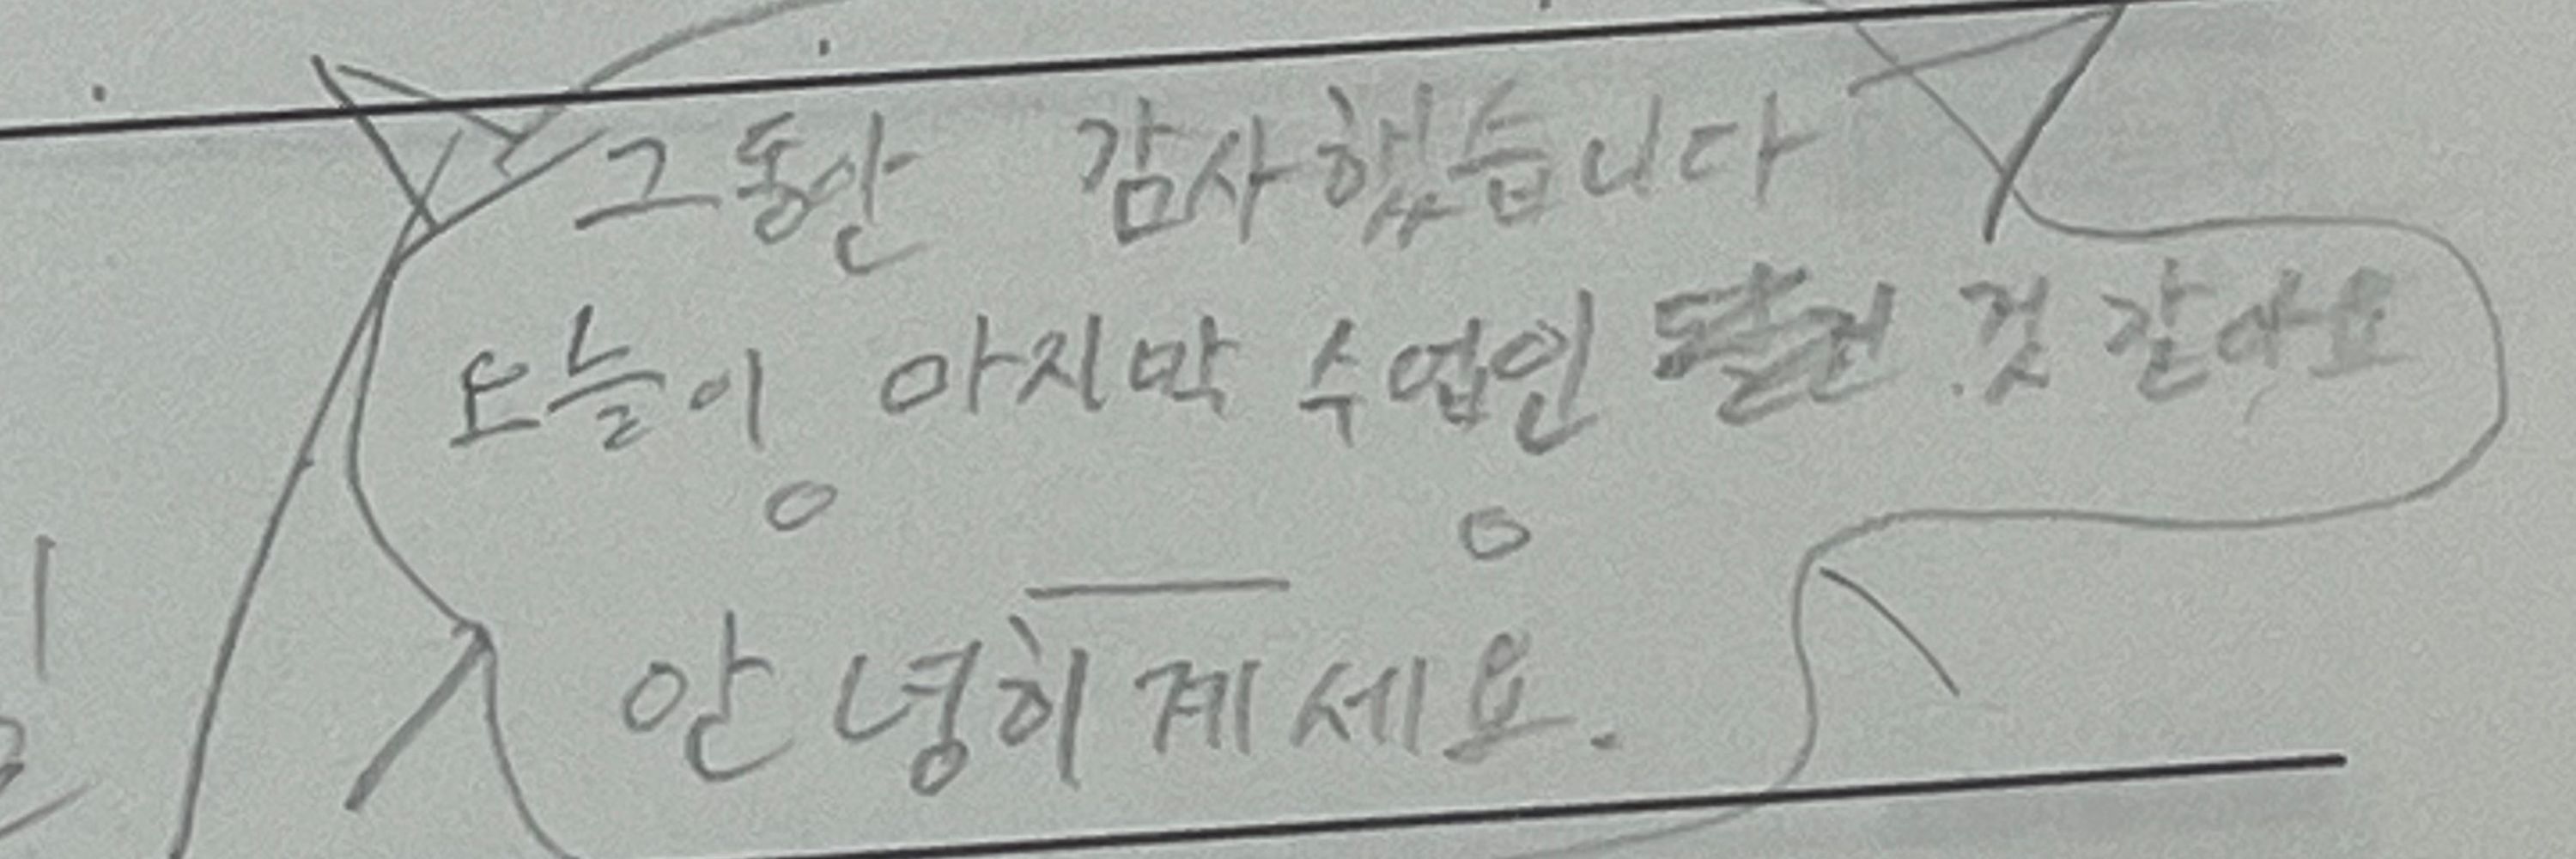 그동안 감사했습니다
오늘이 마지막 수업인 것 같아요
안녕히계세요.